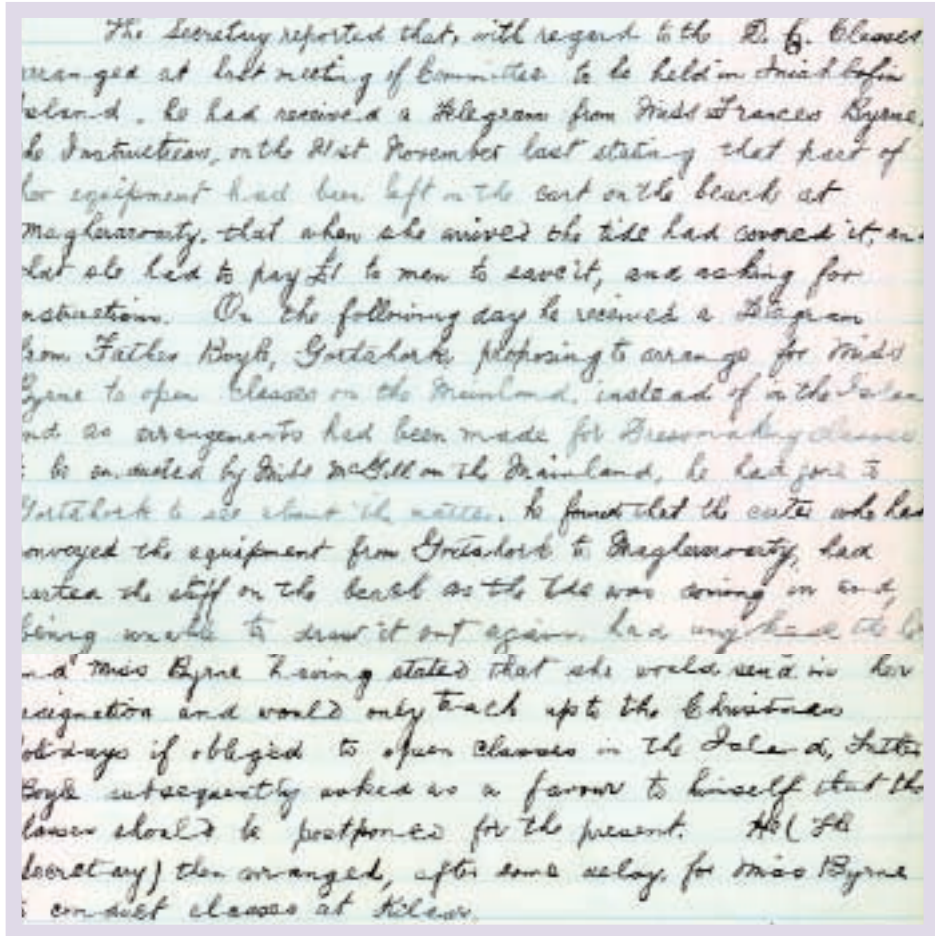 The Secretary reported that, with regard to the D. E. Classes
rranged at last meeting of Committee to be held in Inishbofin
sland, he had received a Telegram from Miss Frances Byrne,
he Instructress, on the 21st November last stating that part of
her equipment had been left on the cart on the beach at
Magheraroarty, that when she arrived the tide had covered it, and
hat she had to pay £1 to men to save it, and asking for
nstructions. On the following day he received a Telegram
from Father Boyle, Gortahork proposing to arrange for Miss
Byrne to open classes on the Mainland, instead of in the Islan
nd as arrangements had been made for Dressmaking classes
be conducted by Miss McGill on the Mainland, he had gone to
Gortahork to see about the matter. he found that the carter who had
onveyed the equipment from Gortahork to Magheraroarty, had
the stuff on the beach as the tide was coming in and,
being unable to draw it out again, had the
nd Miss Byrne having stated that she would send in her
esignation and would only teach up to the Christmas
olidays if obliged to open classes in the Island, Father
Boyle subsequently asked as a favour to himself that the
lasses should be postponed for the present. He (the
Secretary) then arranged, after some delay, for Miss Byrne
conduct classes at Kilcar.